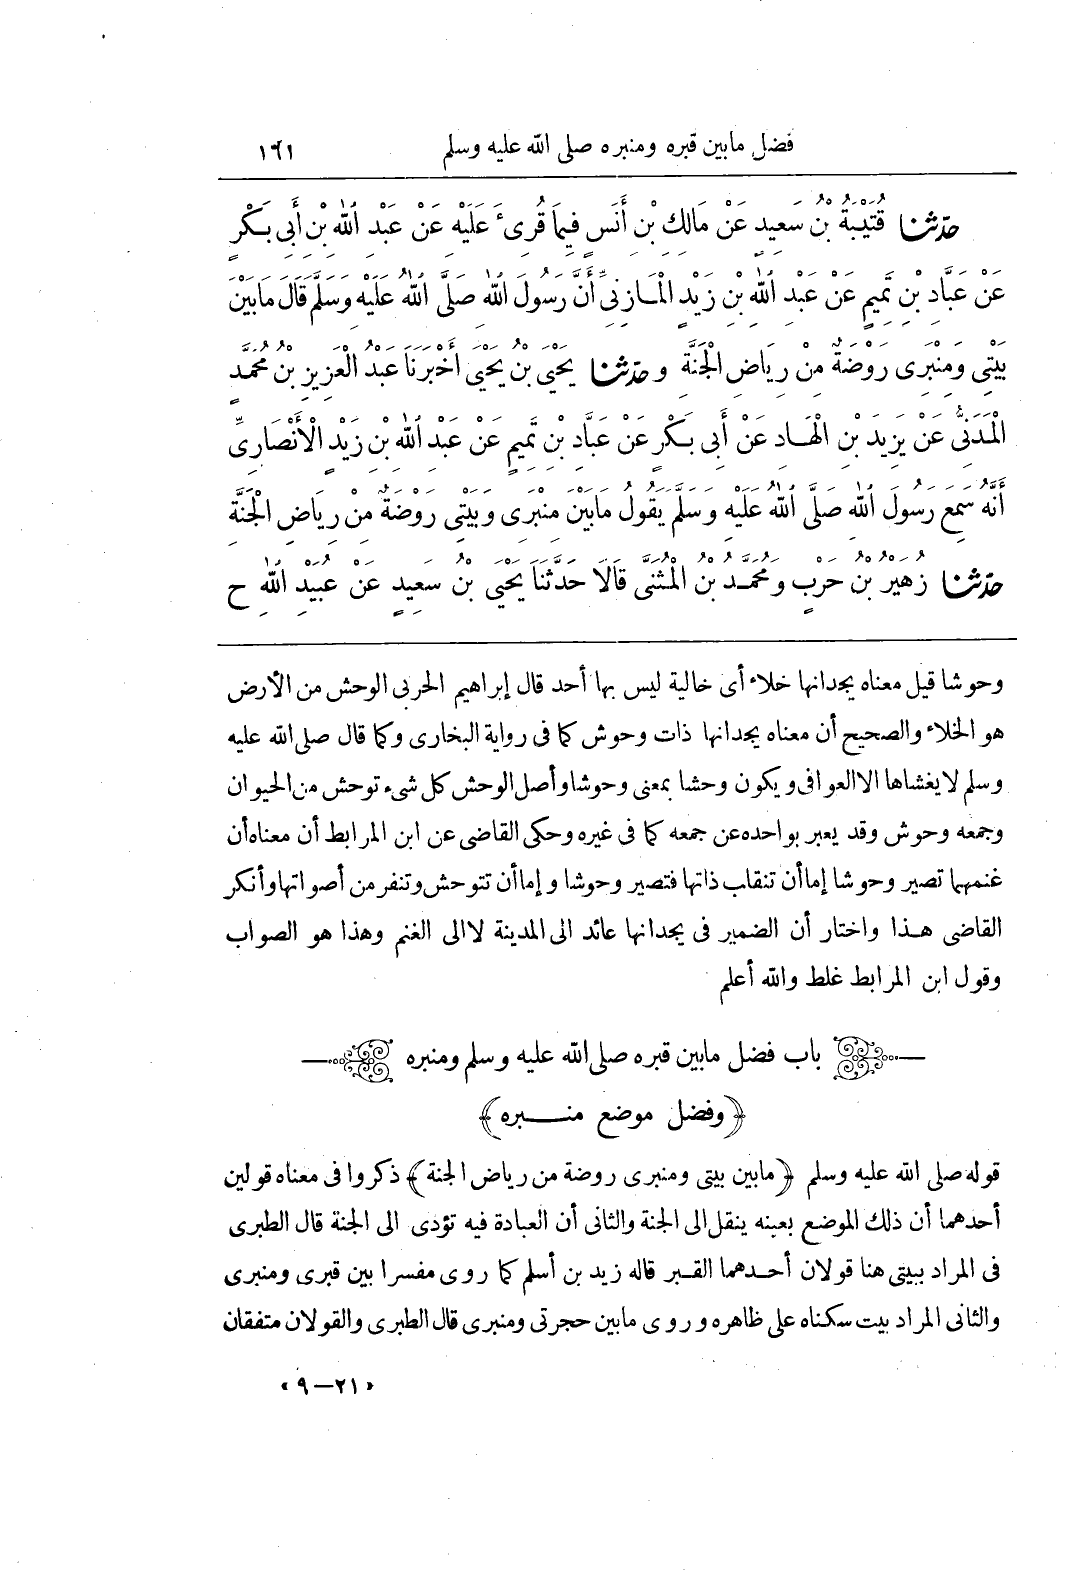 فضل مابين قبره ومنبره صلى الله عليه وسلم ١٦١
حدثنا قُتَيْبَةُ بْنُ سَعِيدٍ عَنْ مَالِكِ بْنِ أَنَسٍ فِيمَا قُرِىءَ عَلَيْهِ عَنْ عَبْدِ اللهِ بْنِ أَبِى بَكْرٍ
عَنْ عَبَّادِ بْنِ تَمِيمٍ عَنْ عَبْدِ اللهِ بْنِ زَيْدٍ الْمَازِنِىِّ أَنَّ رَسُولَ اللهِ صَلَّى اللهُ عَلَيْهِ وَسَلَّمَ قَالَ مَابَيْنَ
بَيْتِى وَمِنْبَرِى رَوْضَةٌ مِنْ رِيَاضِ الْجَنَّةِ و حدثنا يَحْيَى بْنُ يَحْيَى أَخْبَرَنَا عَبْدُ الْعَزِيزِ بْنُ مُحَمَّدٍ
الْمَدَنِىُّ عَنْ يَزِيدَ بْنِ الْهَادِ عَنْ أَبِى بَكْرٍ عَنْ عَبَّادِ بْنِ تَمِيمٍ عَنْ عَبْدِ اللهِ بْنِ زَيْدٍ الْأَنْصَارِىِّ
أَنَّهُ سَمِعَ رَسُولَ اللهِ صَلَّى اللهُ عَلَيْهِ وَسَلَّمَ يَقُولُ مَابَيْنَ مِنْبَرِى وَبَيْتِى رَوْضَةٌ مِنْ رِيَاضِ الْجَنَّةِ
حدثنا زُهَيْرُ بْنُ حَرْبٍ وَمُحَمَّدُ بْنُ الْمُثَنَّى قَالَا حَدَّثَنَا يَحْيَى بْنُ سَعِيدٍ عَنْ عُبَيْدِ اللهِ ح
وحوشا قيل معناه يجدانها خلاء أى خالية ليس بها أحد قال إبراهيم الحربى الوحش من الأرض
هو الخلاء والصحيح أن معناه يجدانها ذات وحوش كما فى رواية البخارى وكما قال صلى الله عليه
وسلم لا يغشاها الا العوافى ويكون وحشا بمعنى وحوشا وأصل الوحش كل شىء توحش من الحيوان
وجمعه وحوش وقد يعبر بواحده عن جمعه كما فى غيره وحكى القاضى عن ابن المرابط أن معناه أن
غنمهما تصير وحوشا إما أن تنقلب ذاتها فتصير وحوشا و إما أن تتوحش وتنفر من أصواتها وأنكر
القاضى هذا واختار أن الضمير فى يجدانها عائد الى المدينة لا الى الغنم وهذا هو الصواب
وقول ابن المرابط غلط والله أعلم
باب فضل مابين قبره صلى الله عليه وسلم ومنبره
﴿وفضل موضع منبره﴾
قوله صلى الله عليه وسلم ﴿مابين بيتى ومنبرى روضة من رياض الجنة﴾ ذكروا فى معناه قولين
أحدهما أن ذلك الموضع بعينه ينقل الى الجنة والثانى أن العبادة فيه تؤدى الى الجنة قال الطبرى
فى المراد ببيتى هنا قولان أحدهما القبر قاله زيد بن أسلم كما روى مفسرا بين قبرى ومنبرى
والثانى المراد بيت سكناه على ظاهره وروى مابين حجرتى ومنبرى قال الطبرى والقولان متفقان
«٢١—٩»